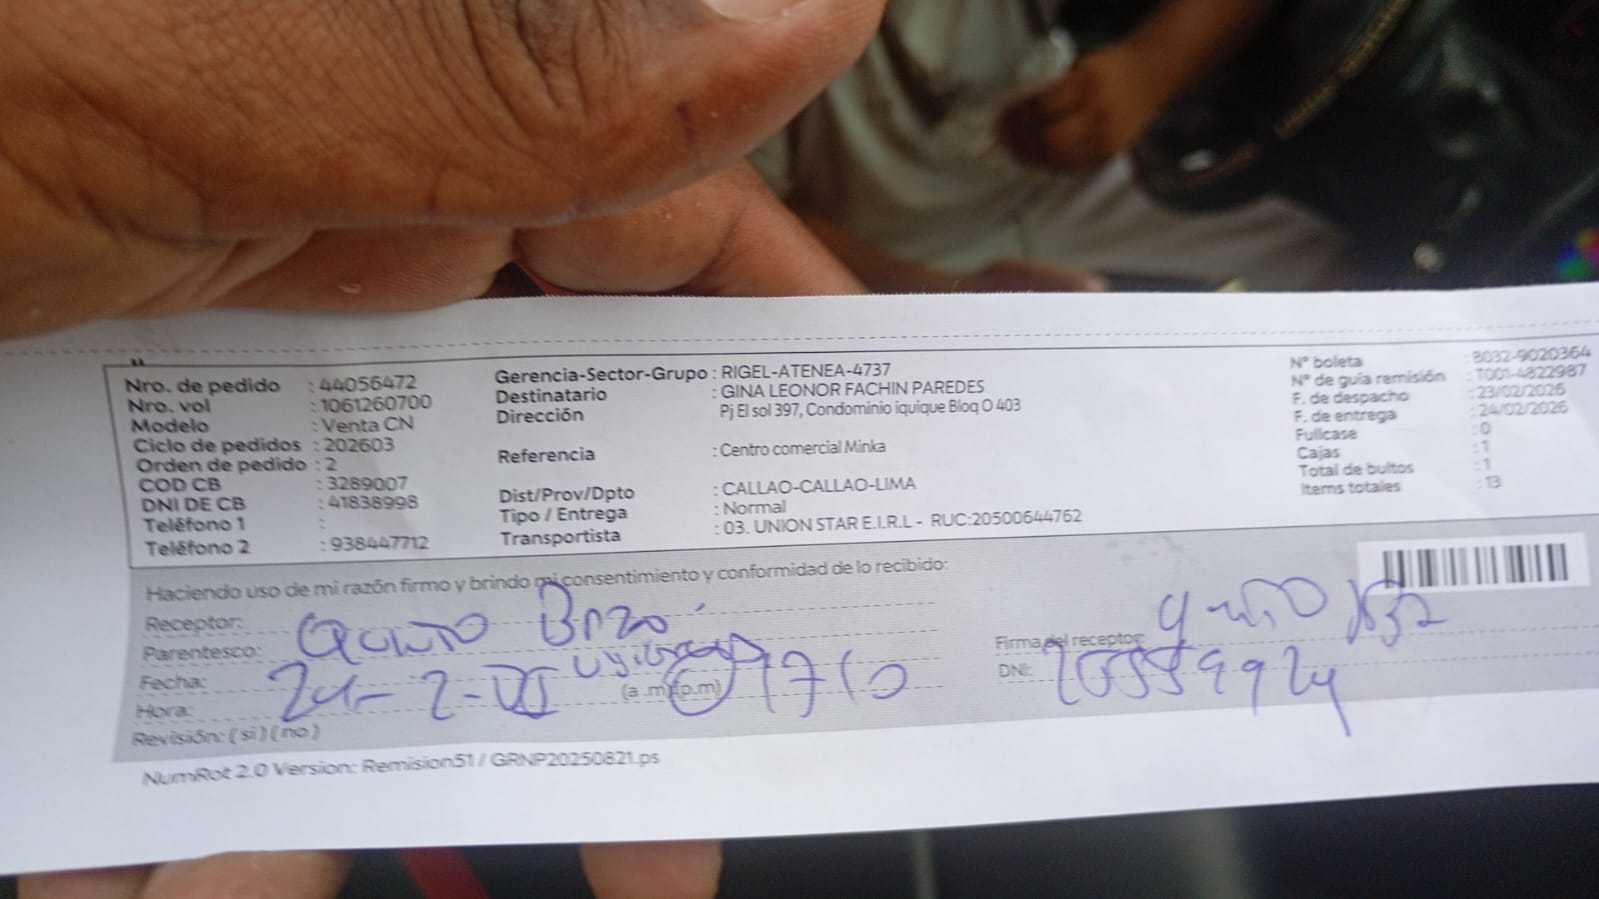 Nro. de pedido : 44056472
Nro. vol : 1061260700
Modelo : Venta CN
Ciclo de pedidos : 202603
Orden de pedido : 2
COD CB : 3289007
DNI DE CB : 41838998
Teléfono 1 :
Teléfono 2 : 938447712
Gerencia-Sector-Grupo : RIGEL-ATENEA-4737
Destinatario : GINA LEONOR FACHIN PAREDES
Dirección Pj El sol 397, Condominio iquique Bloq O 403
Referencia : Centro comercial Minka
Dist/Prov/Dpto : CALLAO-CALLAO-LIMA
Tipo / Entrega : Normal
Transportista : 03. UNION STAR E.I.R.L - RUC:20500644762
N° boleta : B032-9020364
N° de guía remisión : T001-4822987
F. de despacho : 23/02/2026
F. de entrega : 24/02/2026
Fullcase : 0
Cajas : 1
Total de bultos : 1
Items totales : 13
Haciendo uso de mi razón firmo y brindo mi consentimiento y conformidad de lo recibido:
Receptor:
Parentesco:
Fecha:
Hora: (a .m) (p.m)
Revisión: ( si ) ( no )
Firma del receptor:
DNI:
NumRot 2.0 Version: Remision51 / GRNP20250821.ps